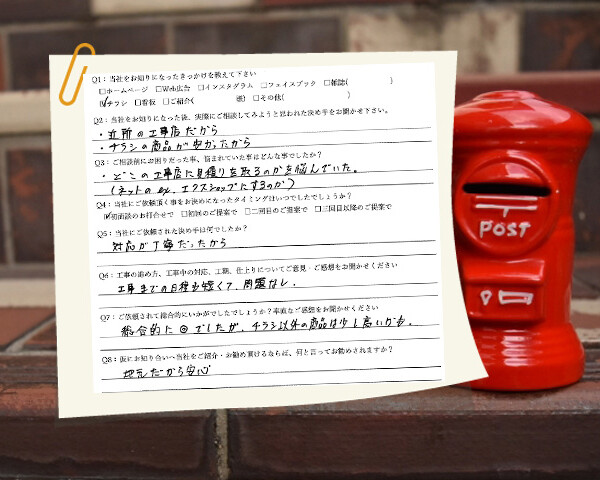 Q1：当社をお知りになったきっかけを教えて下さい
□ホームページ □Web広告 □インスタグラム □フェイスブック □雑誌( )
☑チラシ □看板 □ご紹介( 様) □その他( )
Q2：当社をお知りになった後、実際にご相談してみようと思われた決め手をお聞かせ下さい。
・近所の工事店だから
・チラシの商品が安かったから
Q3：ご相談前にお困りだった事、悩まれていた事はどんな事でしたか？
・どこの工事店に見積りを取るのかを悩んでいた。
(ネットの ex. エクスショップにするのか)
Q4：当社にご依頼頂く事をお決めになったタイミングはいつでしたでしょうか？
☑初面談のお打合せで □初回のご提案で □二回目のご提案で □三回目以降のご提案で
Q5：当社にご依頼された決め手は何でしたか？
対応が丁寧だったから
Q6：工事の進め方、工事中の対応、工期、仕上りについてご意見・ご感想をお聞かせください
工事までの日程も短くて、問題なし。
Q7：ご依頼されて総合的にいかがでしたでしょうか？率直なご感想をお聞かせください
総合的に◎でしたが、チラシ以外の商品は少し高いかも。
Q8：仮にお知り合いへ当社をご紹介・お勧め頂けるならば、何と言ってお勧めされますか？
地元だから安心
〒
POST